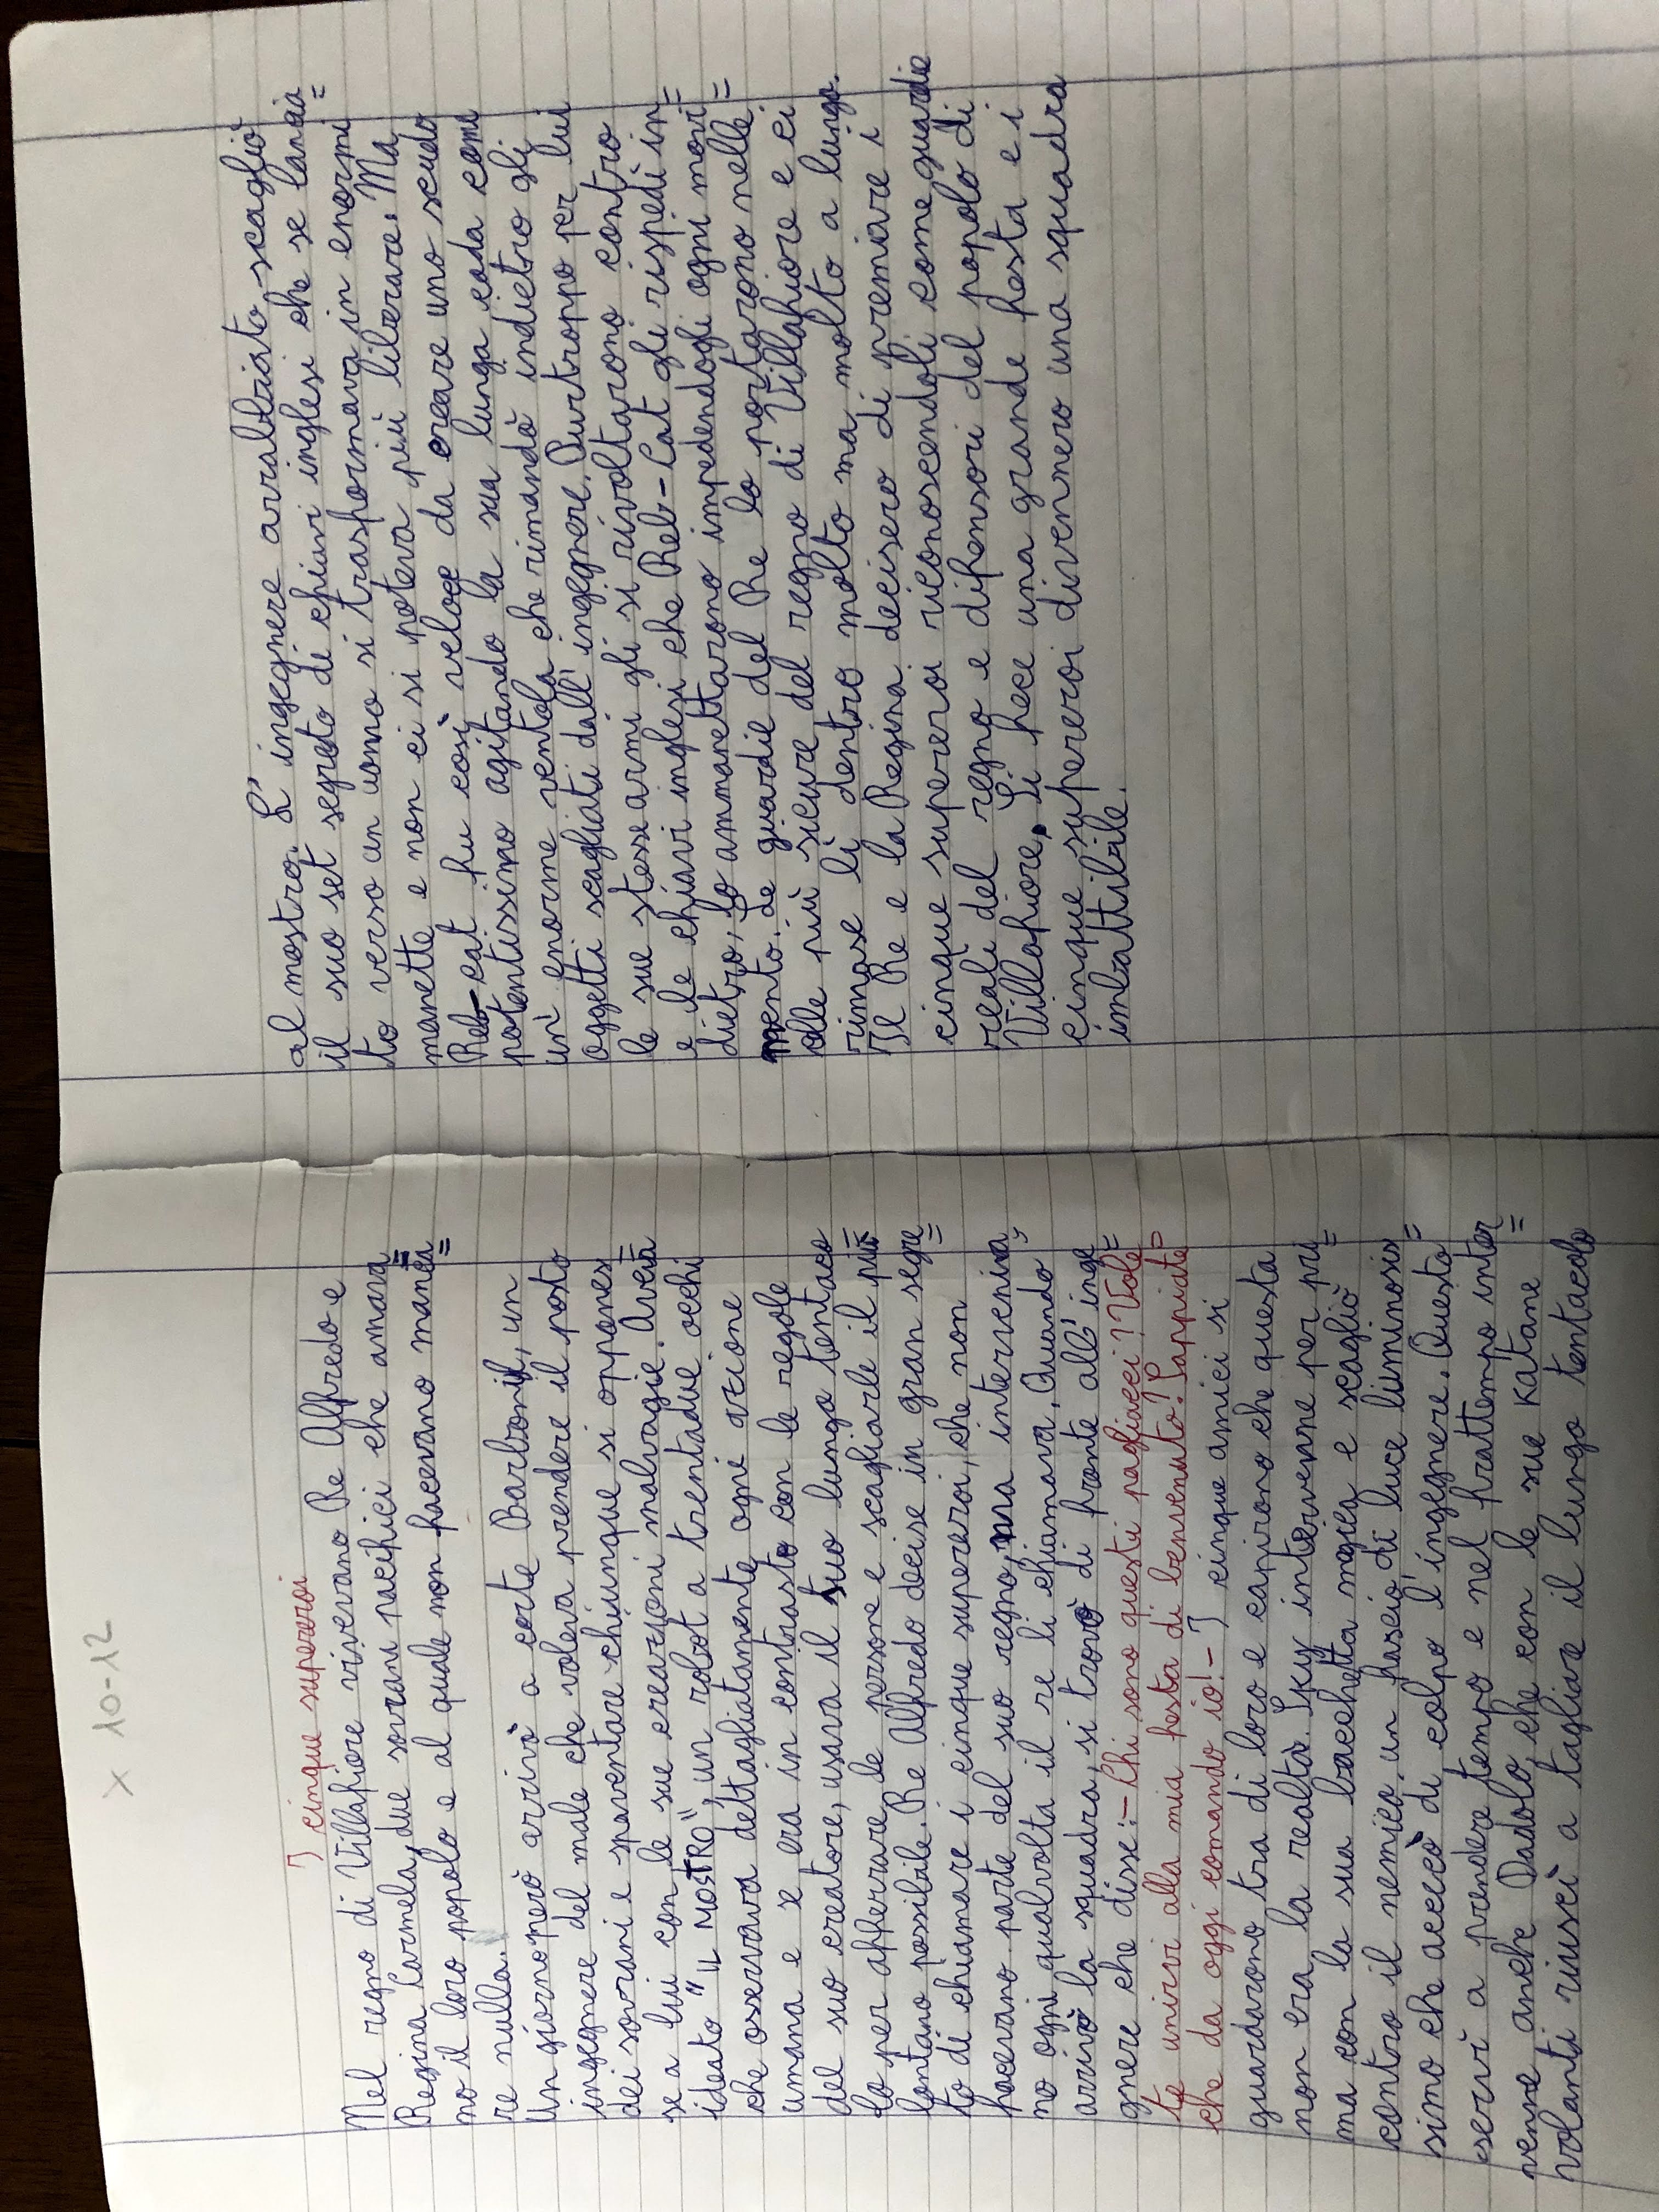 x 10-12
I cinque supereroi
Nel regno di Villafiore vivevano Re Alfredo e
Regina Carmela, due sovrani pacifici che amava=
no il loro popolo e al quale non facevano manca=
re nulla.
Un giorno però arrivò a corte Barbionif, un
ingegnere del male che voleva prendere il posto
dei sovrani e spaventare chiunque si oppones=
se a lui con le sue creazioni malvagie. Aveva
ideato "IL MOSTRO", un robot a trentadue occhi
che osservava dettagliatamente ogni azione
umana e se era in contrasto con le regole
del suo creatore, usava il suo lungo tentaco
lo per afferrare le persone e scagliarle il più
lontano possibile. Re Alfredo decise in gran segre=
to di chiamare i cinque supereroi, che non
facevano parte del suo regno, ma interveniva=
no ogni qualvolta il re li chiamava. Quando
arrivò la squadra, si trovò di fronte all'inge=
gnere che disse:- Chi sono questi pagliacci? Vole=
te unirvi alla mia festa di benvenuto? Sappiate
che da oggi comando io!- I cinque amici si
guardarono tra di loro e capirono che questa
non era la realtà. Sky intervenne per pri=
ma con la sua bacchetta magica e scagliò
contro il nemico, un fascio di luce luminosis=
simo che accecò di colpo l'ingegnere. Questo
servì a prendere tempo e nel frattempo inter=
venne anche Dadolo, che con le sue katane
volanti riuscì a tagliare il lungo tentacolo
al mostro. L'ingegnere arrabbiato scagliò
il suo set segreto di chiavi inglesi che se lancia=
to verso un uomo si trasformava in enormi
manette e non ci si poteva più liberare. Ma
Reb-cat fu così veloce da creare uno scudo
potentissimo agitando la sua lunga coda come
un'enorme ventola che rimandò indietro gli
oggetti scagliati dall'ingegnere. Purtroppo per lui
le sue stesse armi gli si rivoltarono contro
e le chiavi inglesi che Reb-Cat gli rispedì in=
dietro, lo ammanettarono impedendogli ogni movi=
mento. Le guardie del Re lo portarono nelle
celle più sicure del regno di Villafiore e ci
rimase lì dentro molto ma molto a lungo.
Il Re e la Regina decisero di premiare i
cinque supereroi riconoscendoli come guardie
reali del regno e difensori del popolo di
Villafiore. Si fece una grande festa e i
cinque supereroi divennero una squadra
imbattibile.